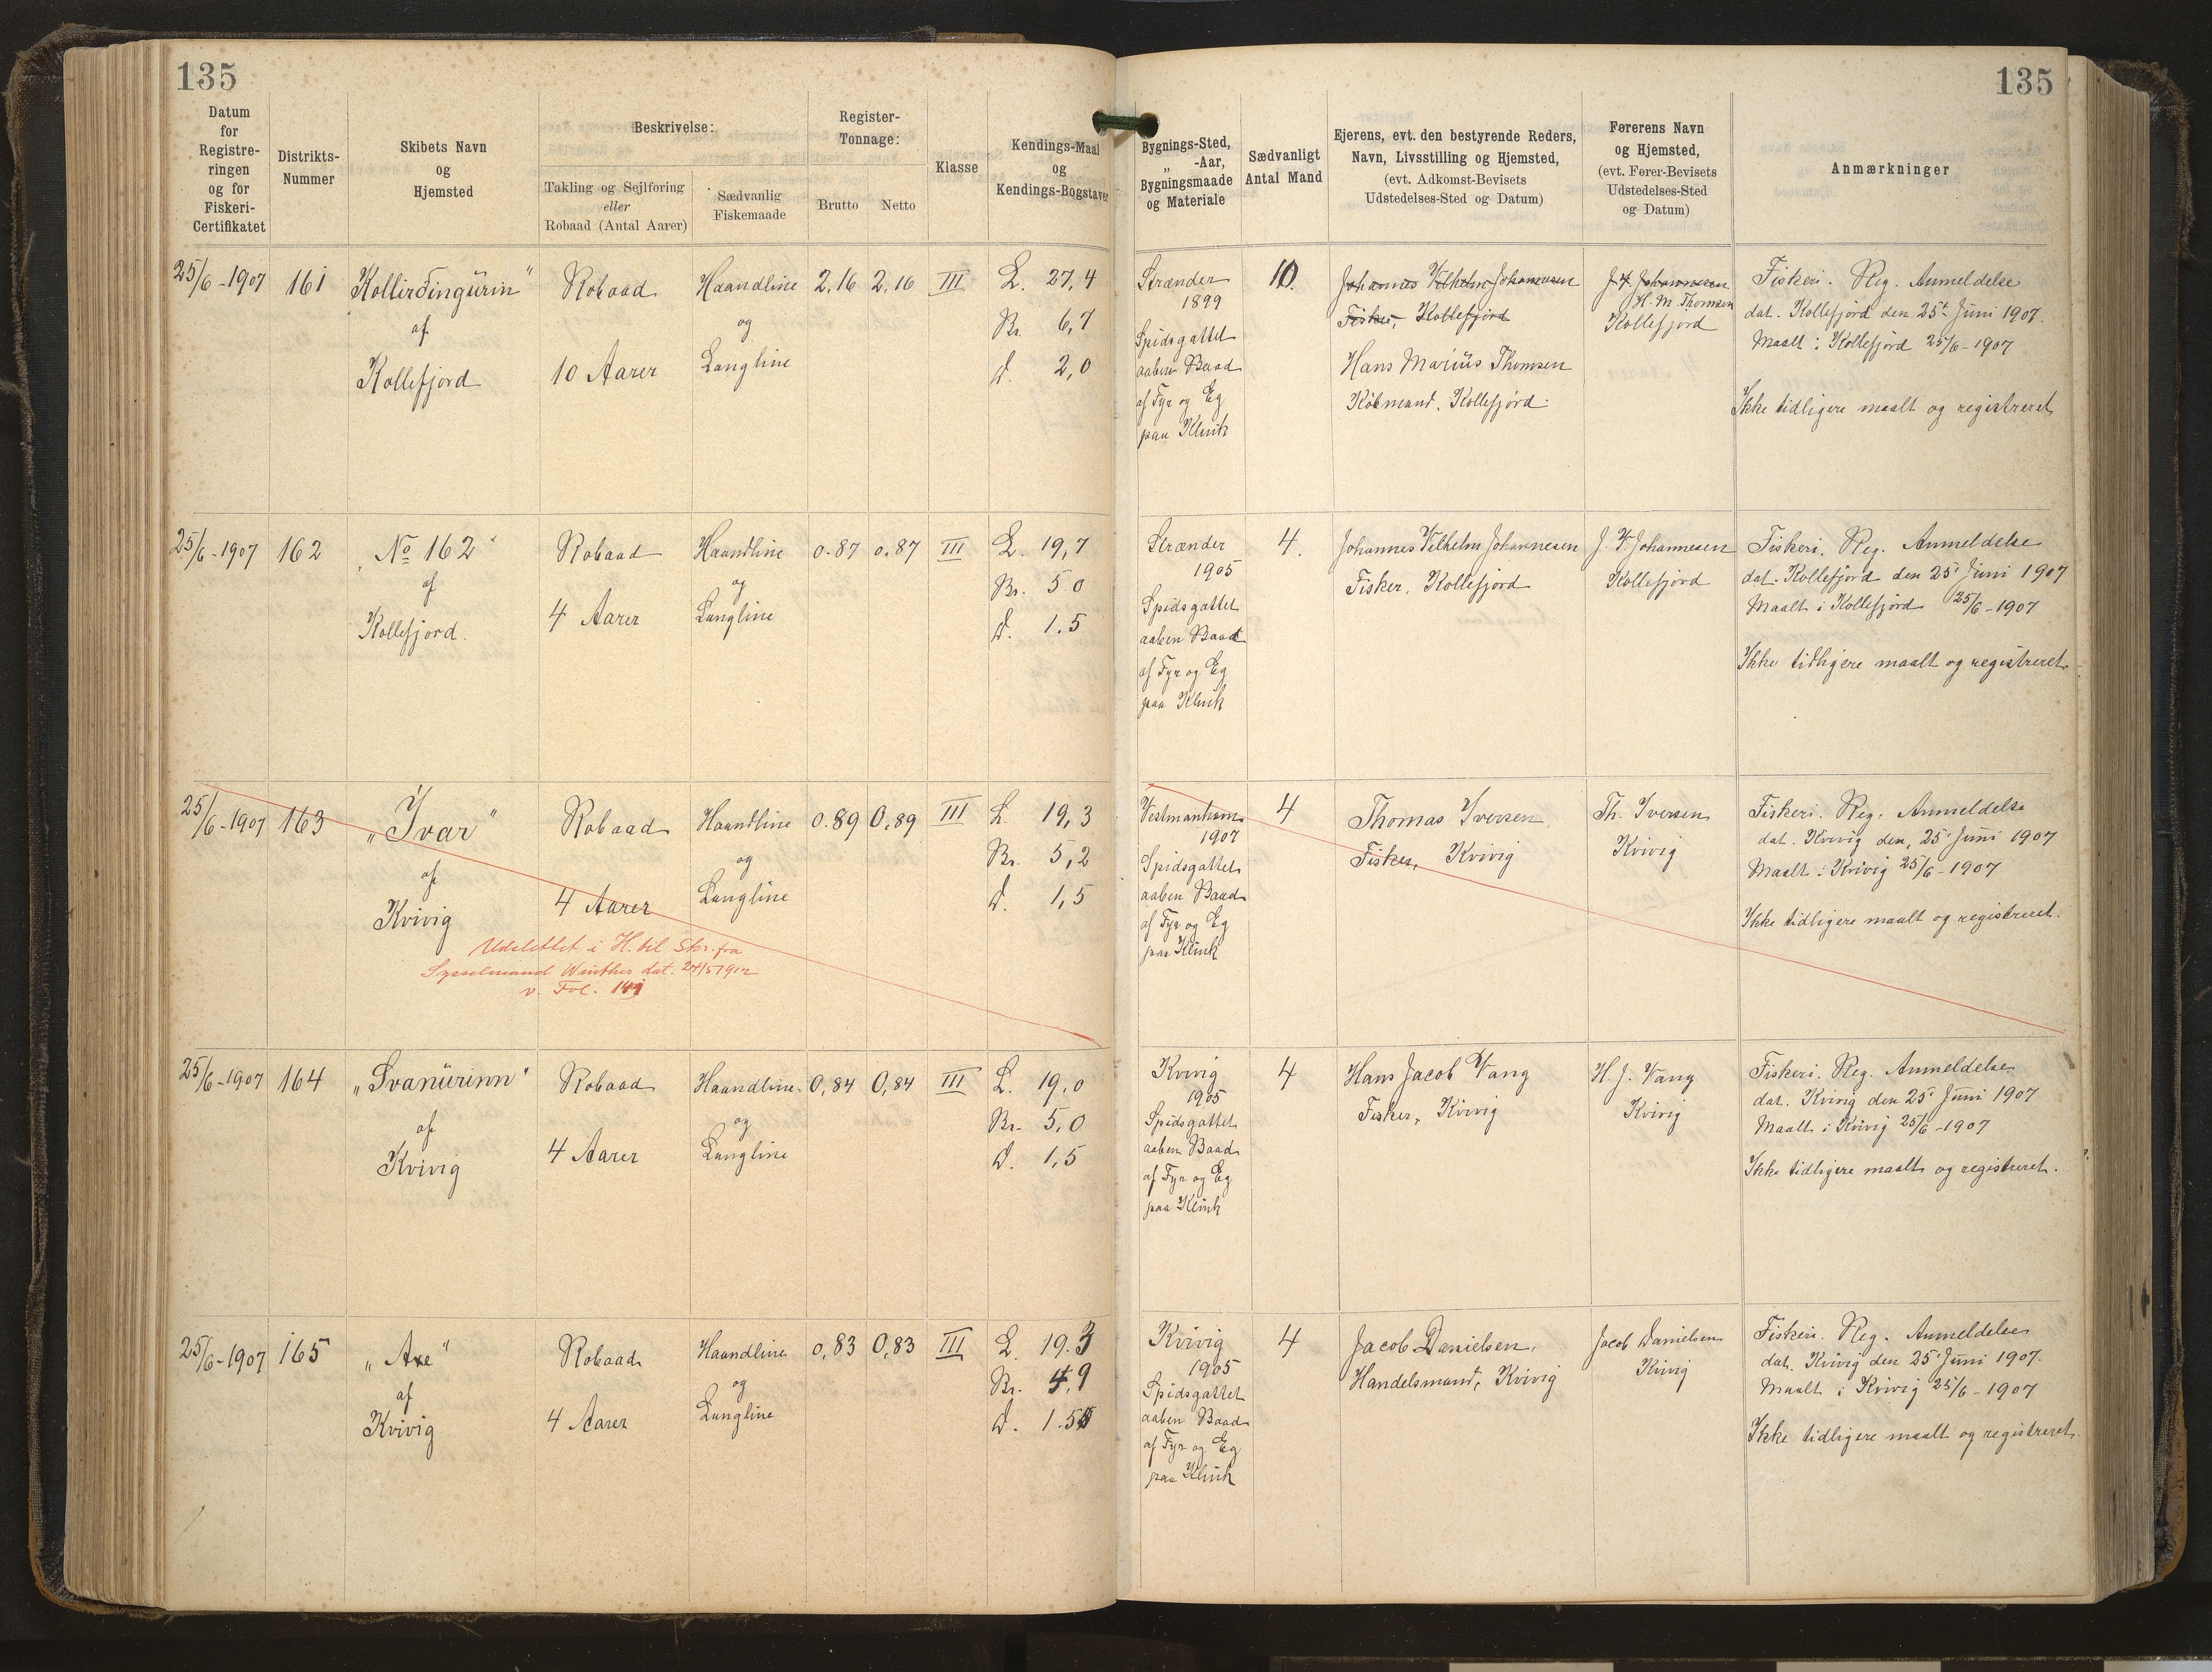 135
135
Datum
for
Registre-
ringen
og for
Fiskeri-
Certifikatet
Distrikts-
Nummer
Skibets Navn
og
Hjemsted
Beskrivelse:
Takling og Sejlføring
eller
Robaad (Antal Aarer)
Sædvanlig
Fiskemaade
Register-
Tonnage:
Brutto
Netto
Klasse
Kendings-Maal
og
Kendings-Bogstaver
Bygnings-Sted,
„ -Aar,
Bygningsmaade
og Materiale
Sædvanligt
Antal Mand
Ejerens, evt. den bestyrende Reders,
Navn, Livsstilling og Hjemsted,
(evt. Adkomst-Bevisets
Udstedelses-Sted og Datum)
Førerens Navn
og Hjemsted,
(evt. Fører-Bevisets
Udstedelses-Sted
og Datum)
Anmærkninger
25/6-1907
161
Kollirðingürin"
af
Kollefjord
Robaad
10 Aarer
Haandline
og
Langline
2,16
2,16
III
L. 27,4
Br. 6,7
d. 2,0
Strænder
1899
Spidsgattet
aaben Baad
af Fyr og Eg
paa Klink
10.
Johannes Vilhelm Johannesen
Fisker, Kollefjord
Hans Marius Thomsen
Købmand. Kollefjord.
J V Johannesen
H. M. Thomsen
Kollefjord
Fiskeri. Reg. Anmeldelse
dat. Kollefjord den 25t Juni 1907.
Maalt i Kollefjord 25/6-1907
Ikke tidligere maalt og registreret
25/6-1907
162
No 162"
af
Kollefjord.
Robaad
4 Aarer
Haandline
og
Langline
0.87
0.87
III
L. 19,7
Br. 5 0
d. 1.5
Strænder
1905
Spidsgattet
aaben Baad
af Fyr og Eg
paa Klink
4.
Johannes Vilhelm Johannesen
Fisker. Kollefjord
J. V. Johannesen
Kollefjord
Fiskeri. Reg. Anmeldelse
dat. Kollefjord den 25' Juni 1907
Maalt i Kollefjord 25/6-1907
Ikke tidligere maalt og registreret.
25/6-1907
163
„Ivar"
af
Kvivig
Robaad
4 Aarer
Haandline
og
Langline
0.89
0,89
III
L. 19,3
Br. 5,2
d. 1,5
Udslettet i H. til Skr. fra
Sysselmand Winther dat. 24/5 1912
v. Fol. 141
Vestmanhavn
1907
Spidsgattet
aaben Baad
af Fyr og Eg
paa Klink
4
Thomas Iversen.
Fisker, Kvivig
Th. Iversen
Kvivig
Fiskeri. Reg. Anmeldelse
dat. Kvivig den, 25' Juni 1907
Maalt i Kvivig 25/6-1907
Ikke tidligere maalt og registreret.
25/6-1907
164
„Svanürinn"
af
Kvivig
Robaad
4 Aarer
Haandline
og
Langline
0,84
0,84
III
L. 19,0
Br. 5,0
d. 1,5
Kvivig
1905
Spidsgattet
aaben Baad
af Fyr og Eg
paa Klink
4
Hans Jacob Vang
Fisker, Kvivig
H. J. Vang
Kvivig
Fiskeri. Reg. Anmeldelse
dat. Kvivig den 25' Juni 1907
Maalt i Kvivig 25/6-1907
Ikke tidligere maalt og registreret.
25/6-1907
165
„Axe"
af
Kvivig
Robaad
4 Aarer
Haandline
og
Langline
0,83
0,83
III
L. 19.3
Br. 4,9
d. 1.5
Kvivig
1905
Spidsgattet
aaben Baad
af Fyr og Eg
paa Klink
4
Jacob Danielsen,
Handelsmand, Kvivig
Jacob Danielsen
Kvivig
Fiskeri. Reg. Anmeldelse
dat. Kvivig den 25' Juni 1907.
Maalt i Kvivig 25/6-1907
Ikke tidligere maalt og registreret.